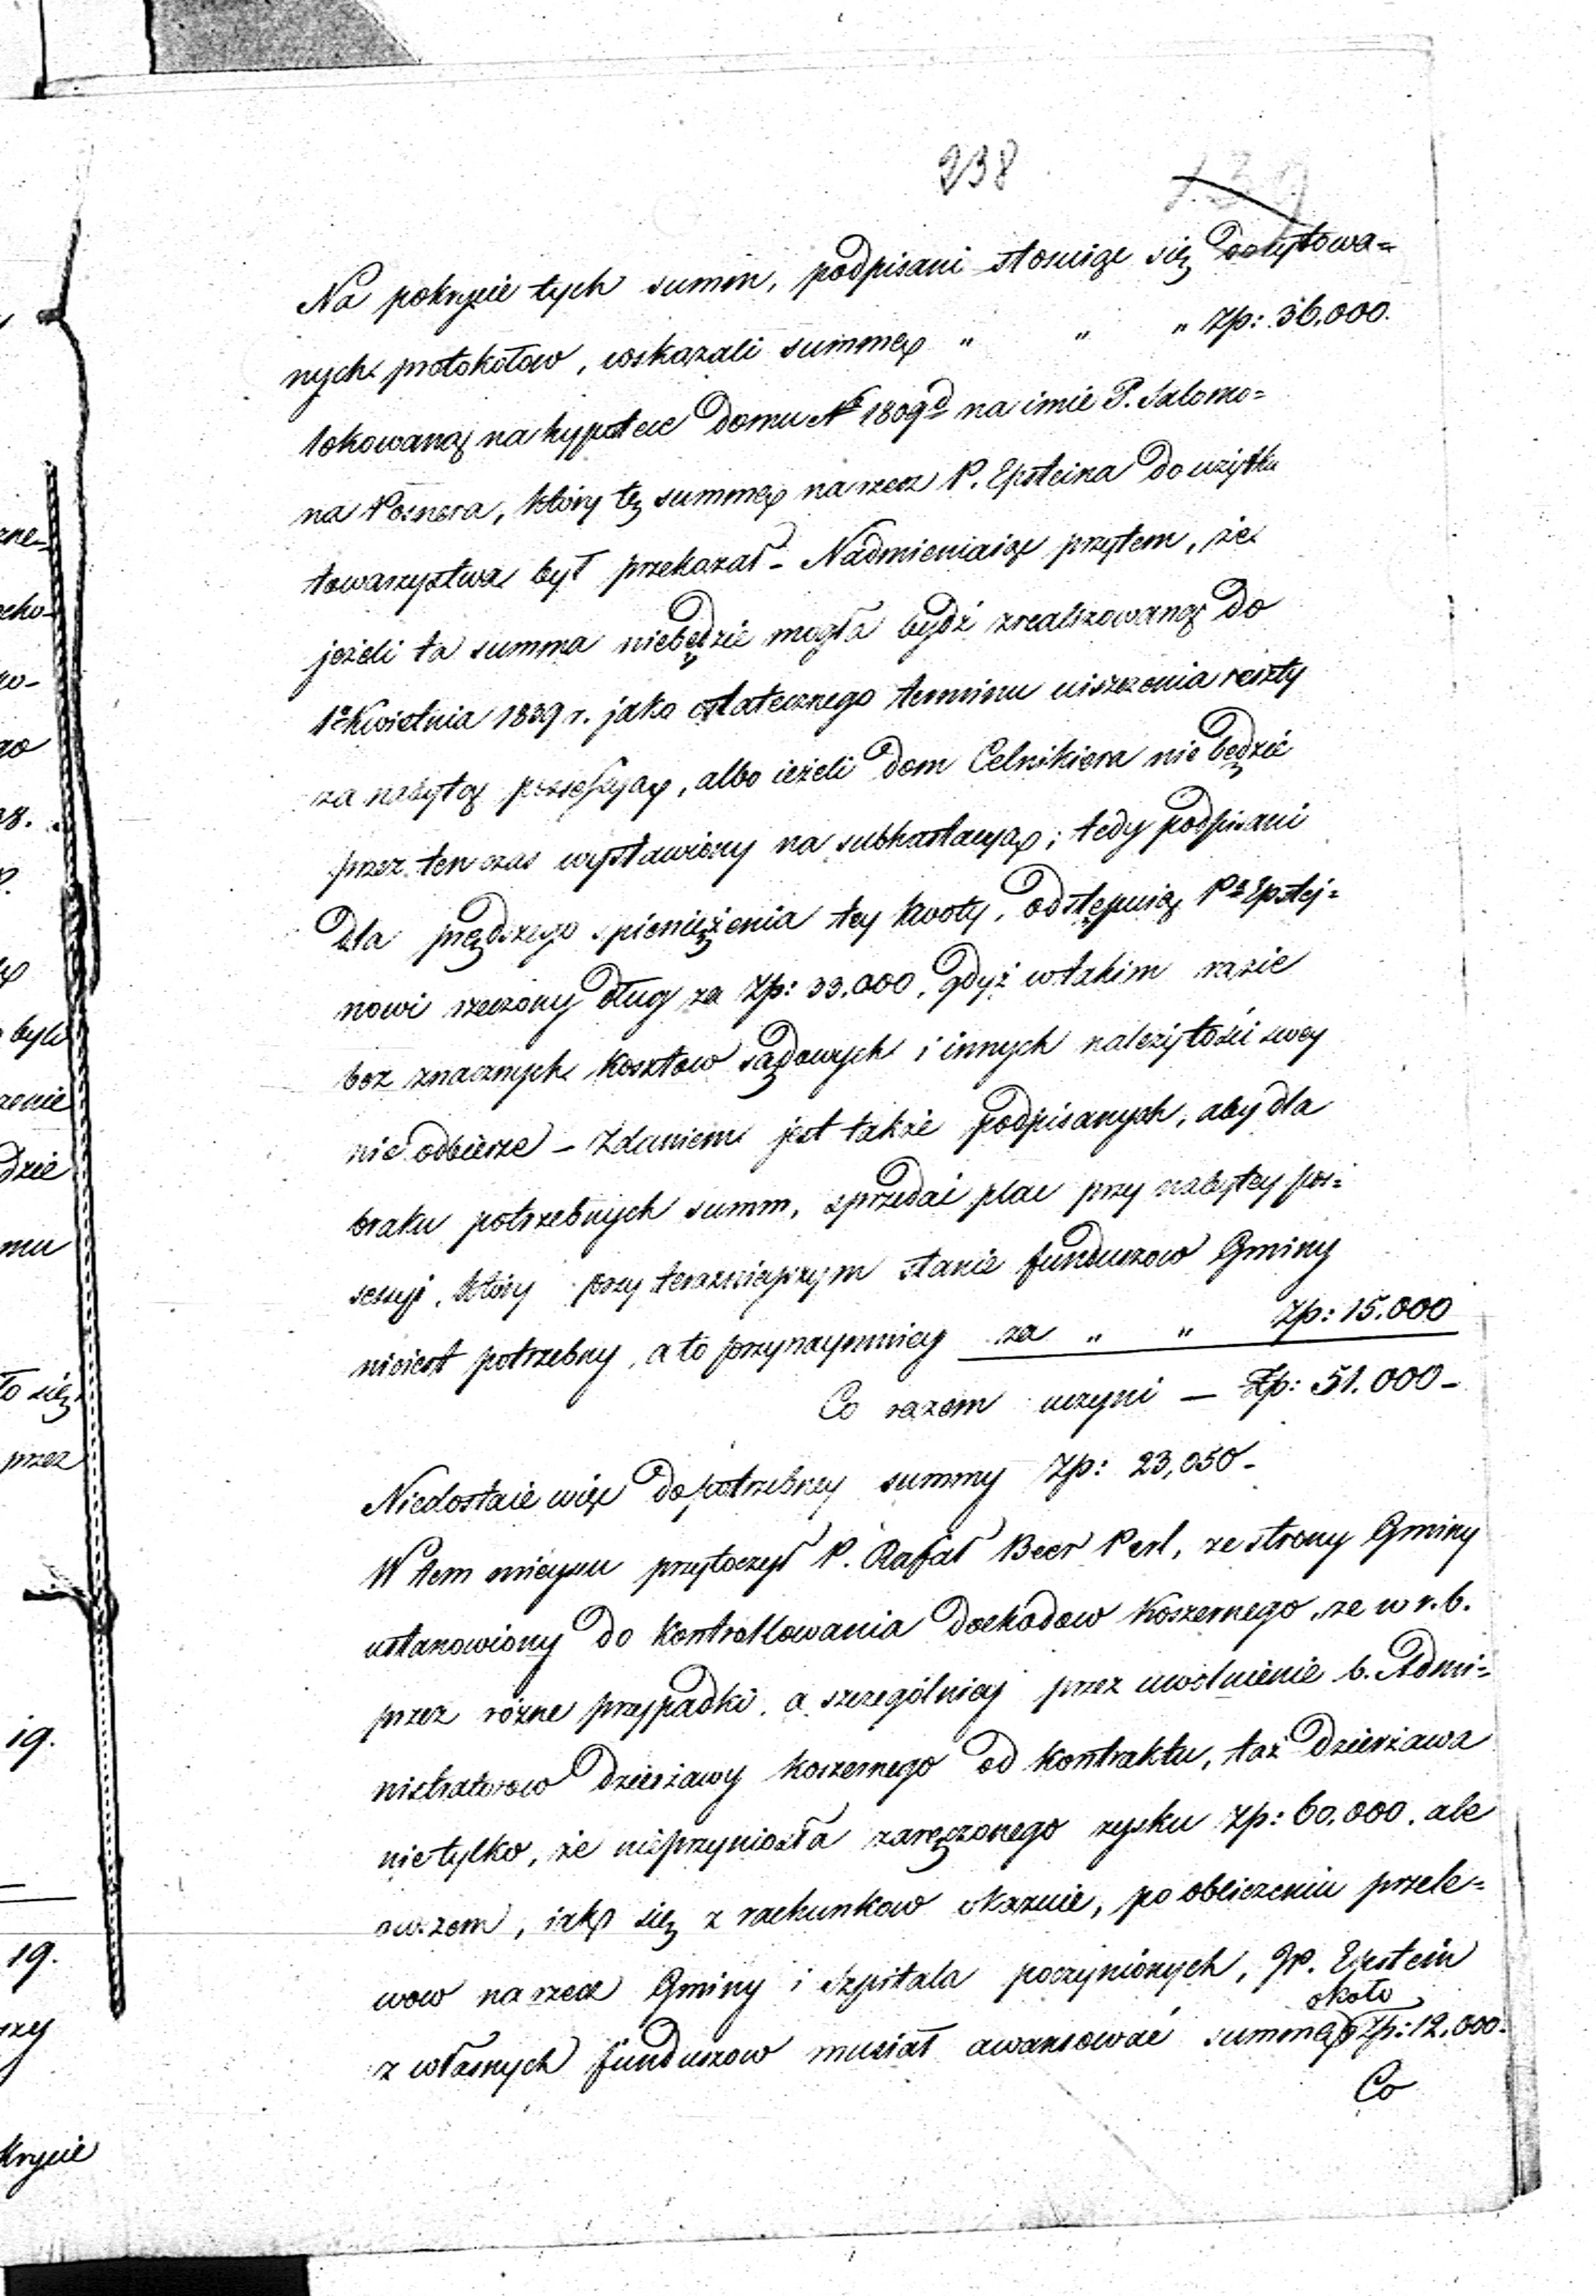 238
139
Na pokrycie tych summ, podpisani stosuiąc się do cytowa=
nych protokołow, wskazali summę " " " Złp: 36.000.
lokowaną na hypotece domu Nº 1809d na imie P. Salomo=
na Posnera, który tę summę na rzecz P. Epsteina do użytku
towarzystwa był przekazał – Nadmieniaiąc przytem, że
jeżeli ta summa niebędzie mogła bydź zrealizowaną do
1º Kwietnia 1839 r. jako ostatecznego terminu uiszczenia reszty
za nabytą possessyą, albo ieżeli dom Celnikiera nie będzie
przez ten czas wystawiony na subhastacyą; tedy podpisani
dla prędszego spieniężenia tey kwoty, odstępuią Pu Epstej=
nowi rzeczony dług za Złp: 33.000, gdyż w takim razie
bez znacznych kosztow sądowych i innych należytości swey
nie odbierze – Zdaniem jest także podpisanych, aby dla
braku potrzebnych summ, sprzedać plac przy nabytey pos=
sessyi, który przy terazniejszym stanie funduszow Gminy
nieiest potrzebny, a to przynaymniey za " " Złp: 15.000
Co razem uczyni — Złp: 51.000 –
Niedostaie więc do potrzebney summy Złp: 23,050 –
W tem mieyscu przytoczył P. Rafał Beer Perl, ze strony Gminy
ustanowiony do kontrollowania dochodow koszernego, że w r. b.
przez rożne przypadki, a szczególniej przez uwolnienie b. Admi=
nistratorow dzierżawy koszernego od kontraktu, taż dzierżawa
nie tylko, że nieprzyniosła zaręczonego zysku Złp: 60.000. ale
owszem, iak się z rachunkow okazuie, po obliczeniu przele=
wow na rzecz Gminy i Szpitala poczynionych, JP. Epstein
około
z własnych funduszow musiał awansować summę Złp: 12.000.
Co
19.
19.